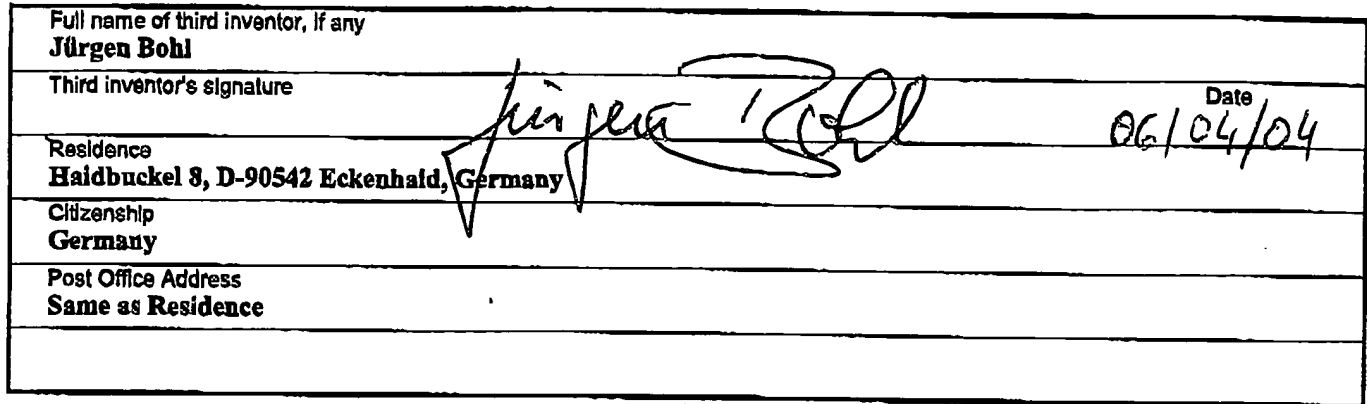 Full name of third inventor, if any
Jürgen Bohl
Third inventor's signature
Jürgen Bohl
Date
06/04/04
Residence
Haidbuckel 8, D-90542 Eckenhaid, Germany
Citizenship
Germany
Post Office Address
Same as Residence